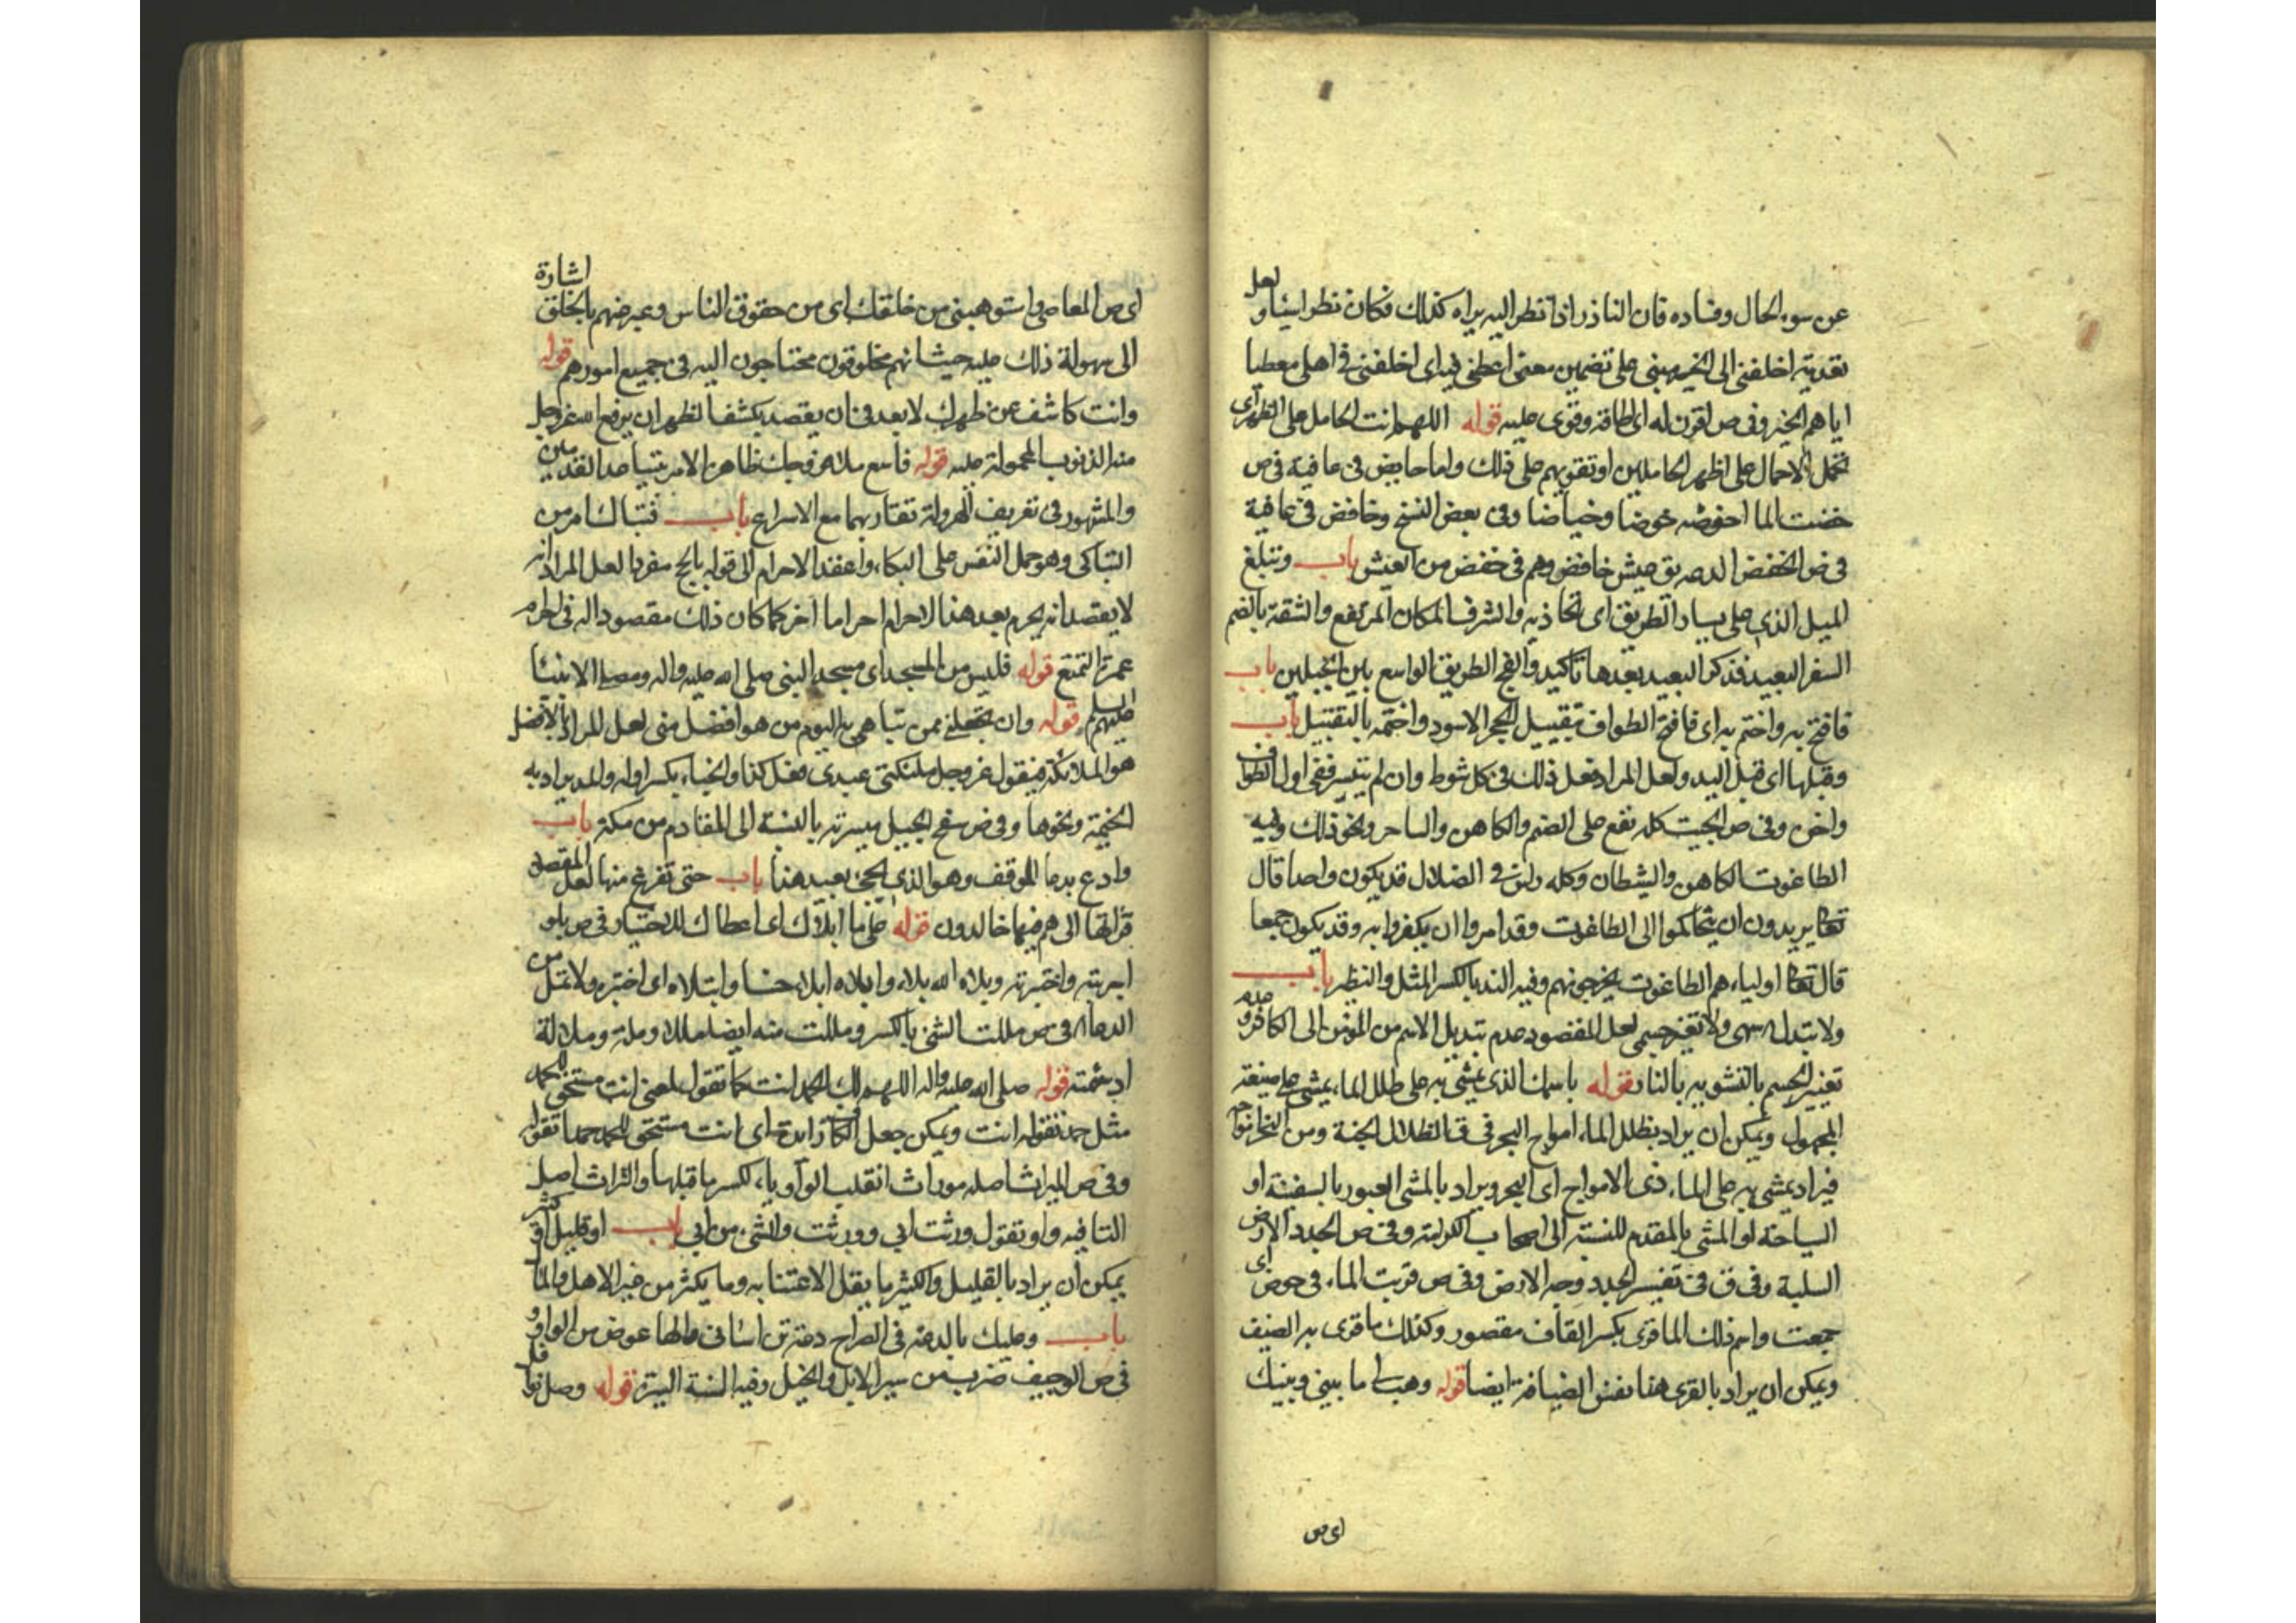 عن سوء الحال وفساده فان الناذر اذا نظر اليه يراه كذلك فكان نظر اسياو لعل
تعدية اخلفني الى الخير مبني على تضمين معنى اعطني فيه اى اخلفني في اهلي معطيا
اياهم الخير وفي ص اقرن له اى اطاقه وقوى عليه قوله اللهم انت الحامل على الظهر اى
تحمل الاحمال على اظهر الحاملين او تقويهم على ذلك واما حايض في عافية في ص
خضت الما اخوضه خوضا وخياضا وفي بعض النسخ وخافض في عافية
في ص الخفض الدعه يق عيش خافض وهم في خفض من العيش باب وتبلغ
الميل الذي على يسار الطريق اى تحاذيه والشرف المكان المرتفع والشقة بالضم
السفر البعيد فذكر البعيد بعدها تاكيد والفج الطريق الواسع بين الجبلين باب
فافتح به واختم به اى فافتح الطواف بتقبيل الحجر الاسود واختمه بالتقبيل باب
وقبلها اى قبل اليد ولعل المراد فعل ذلك في كل شوط وان لم يتيسر ففي اول الطواف
واخره وفي ص الجبت كلمه تقع على الصنم والكاهن والساحر ونحو ذلك وفيه
الطاغوت الكاهن والشيطان وكله راس في الضلال قد يكون واحدا قال
تعا يريدون ان يتحاكموا الى الطاغوت وقد امروا ان يكفروا به وقد يكون جمعا
قال تعا اولياءهم الطاغوت يخرجونهم وفيه الند بالكسر المثل والنظير باب
ولا تبدل اسمى ولا تغير جسمي لعل المقصود عدم تبديل الاسم من المؤمن الى الكافر وعدم
تغيير الجسم بالتشويه بالنار قوله باسمك الذي يمشي به على طلل الماء يمشي على صيغة
المجهول ويمكن ان يراد بظلل الماء امواج البحر في ق الظلال الجنة ومن البحر امواجه
فيراد يمشي به على الماء ذى الامواج اى البحر ويراد بالمشي العبور بالسفينة او
السباحة او المشي بالمقدم للنسبة الى اصحاب الكرامة وفي ص الجدد الارض
الصلبة وفي ق في تفسير الجدد وجه الارض وفي ص قريت الماء في حوض اى
جمعت واسم ذلك الما قرى بكسر القاف مقصور وكذلك ما قرى به الضيف
ويمكن ان يراد بالقرى هنا نفس الضيافة ايضا قوله وهب لى ما بيني وبينك
اى ص
اى ص المعاصي واستوهبني من خلقك اى من حقوق الناس وعبر عنهم بالخلق اشارة
الى سهولة ذلك عليه حيث انهم مخلوقون محتاجون اليه في جميع امورهم قوله
وانت كاشف عن ظهرك لا يبعد في ان يقصد بكشف الظهر ان يرفع الله عز وجل
منه الذنوب المحمولة عليه قوله فاسع ملأ فروجك ظاهر الامر بتباعد القدمين
والمشهور في تعريف الهرولة تقاربهما مع الاسراع باب فتباك امر من
التباكي وهو حمل النفس على البكاء واعقد الاحرام الى قوله بالحج مفردا لعل المراد انه
لا يقصد انه يحرم بعد هذا الاحرام احراما اخر كما كان ذلك مقصودا له في احرام
عمرة التمتع قوله فليس من المسجد اى مسجد النبي صلى الله عليه واله ومصلى الانبياء
عليهم السلم قوله وان تجعلني ممن تباهي به اليوم من هو افضل مني لعل المراد بالافضل
هو الملائكة فيقول عز وجل ملئكتي عبدى فعل كذا والخباء بكسر اوله والمد يراد به
الخيمة ونحوها وفي ص سفح الجبل ميسرته بالنسبة الى القادم من مكة باب
وادع بدعاء الموقف وهو الذي يجئ بعيد هذا باب حتى تفرغ منها لعل المقصد
قرائتها الى هم فيها خالدون قوله على ما ابلاك اى اعطاك للاختبار في ص بلو
اجربته واختبرته وبلاه الله بلاء وابلاه ابلاء حسنا وابتلاه اى اختبره ولا تمل من
الدعاء في ص مللت الشئ بالكسر ومللت منه ايضا مللا وملة وملالة
اذ سئمته قوله صلى الله عليه واله اللهم لك الحمد انت كما تقول يعني انت مستحق للحمد
مثل حمد تقوله انت ويمكن جعل الكاف زايدة اى انت مستحق للحمد حمدا تقوله
وفي ص الميراث اصله موراث انقلب الواو ياء لكسر ما قبلها والتراث اصل
التا فيه واو تقول ورثت ابي وورثت الشئ من ابي باب او قليل او كثير
يمكن ان يراد بالقليل والكثير ما يقل الاعتنا به وما يكثر من غير الاهل والمال
باب وعليك بالدعه في الصراح دعه تن اساني والها عوض من الواو و
في ص الوجيف ضرب من سير الابل والخيل وفيه السنة السيرة قوله وصل